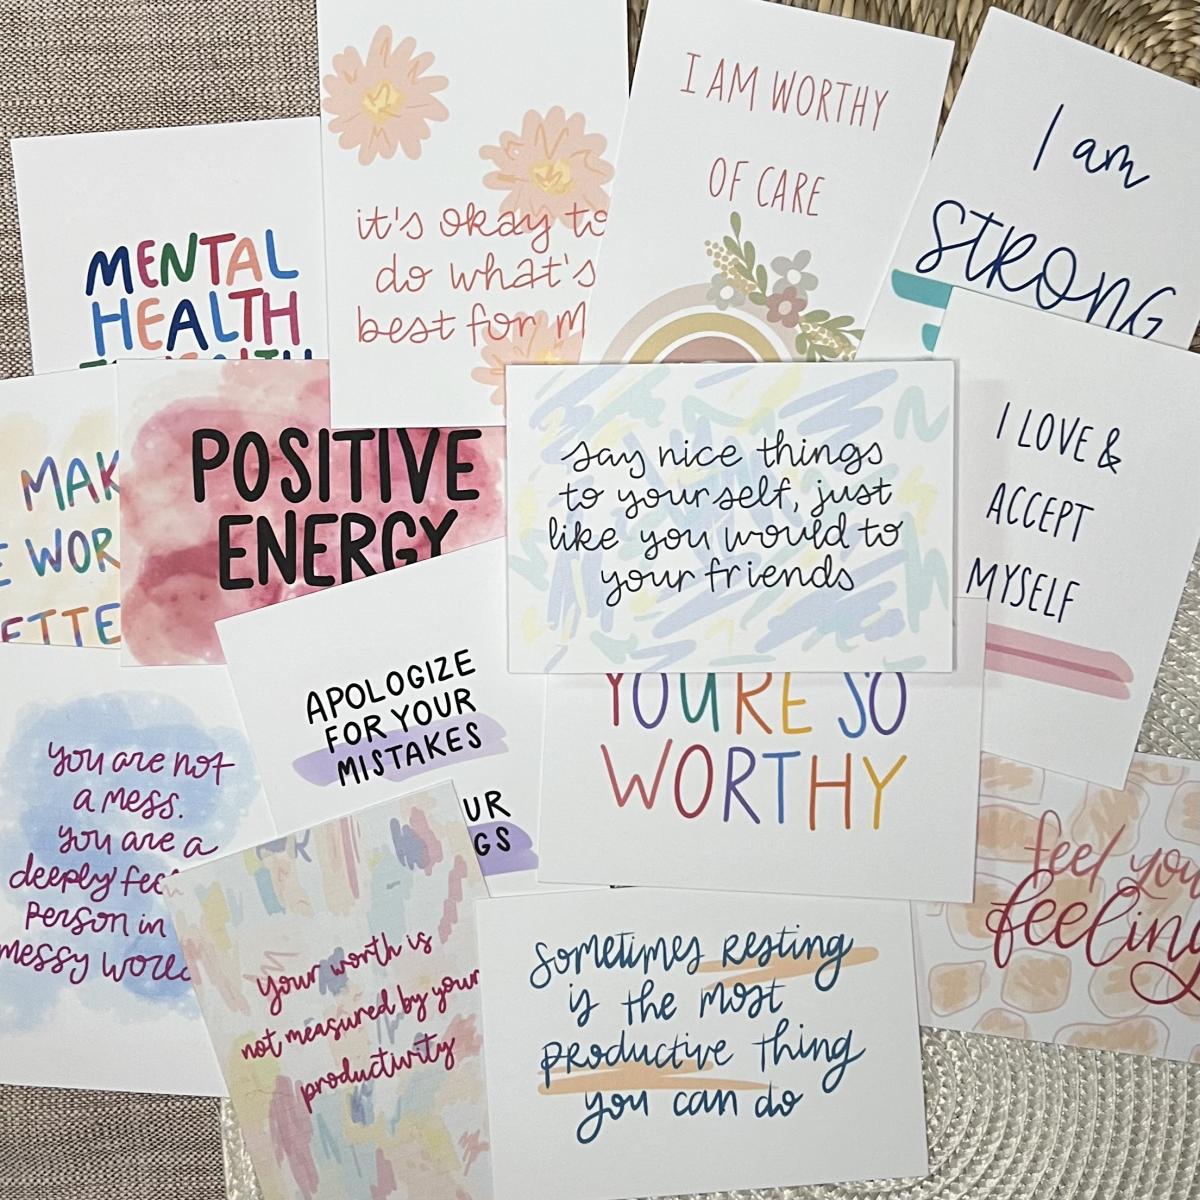 MENTAL
HEALTH
it's okay to
do what's
best for M
I AM WORTHY
OF CARE
I am
STRONG
MAK
WOR
ETTE
POSITIVE
ENERGY
say nice things
to yourself, just
like you would to
your friends
I LOVE &
ACCEPT
MYSELF
APOLOGIZE
FOR YOUR
MISTAKES
UR
GS
YOU'RE SO
WORTHY
you are not
a mess.
you are a
deeply fee
person in
messy world
feel you
feeling
your worth is
not measured by your
productivity
Sometimes resting
is the most
productive thing
you can do